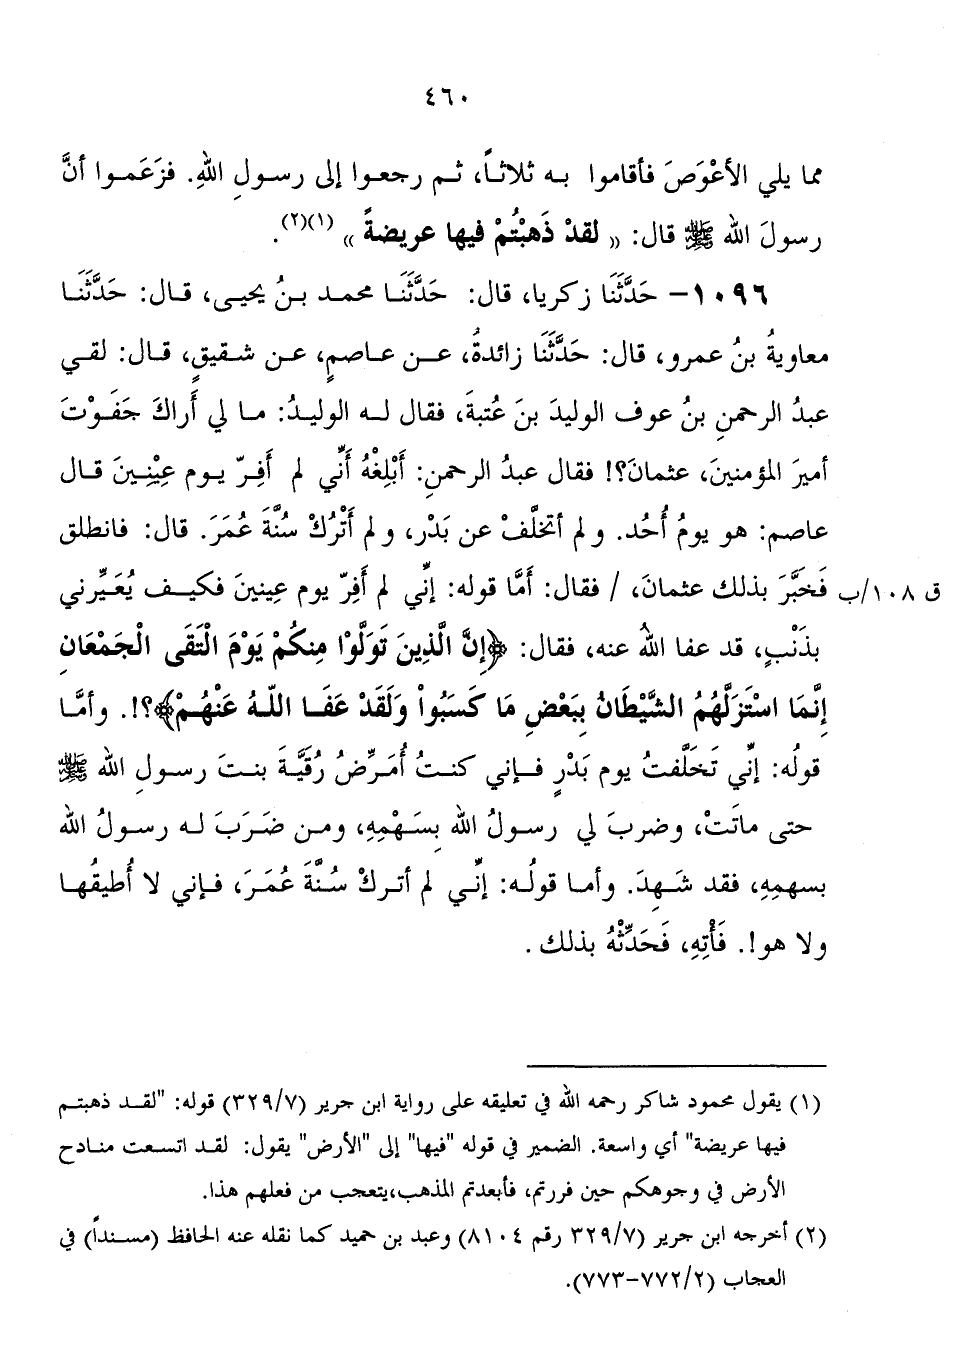 ٤٦٠
مما يلي الأعْوَصَ فأقاموا به ثلاثاً، ثم رجعوا إلى رسولِ اللهِ. فزَعَموا أنَّ
رسولَ الله ﷺ قال: « لقدْ ذَهبْتُمْ فيها عريضةً » (١)(٢).
١٠٩٦- حَدَّثَنَا زكريا، قال: حَدَّثَنَا محمد بنُ يحيى، قال: حَدَّثَنَا
معاويةُ بنُ عمرو، قال: حَدَّثَنَا زائدةُ، عن عاصمٍ، عن شقيقٍ، قال: لقي
عبدُ الرحمنِ بنُ عوف الوليدَ بنَ عُتبةَ، فقال له الوليدُ: ما لي أَراكَ جَفَوْتَ
أميرَ المؤمنين، عثمانَ؟! فقال عبدُ الرحمنِ: أَبْلِغْهُ أَنِّي لم أَفِرّ يوم عِيْنِينَ قال
عاصم: هو يومُ أُحُد. ولم أتخلَّفْ عن بَدْر، ولم أَتْرُكْ سُنَّةَ عُمَرَ. قال: فانطلق
فَخبَّرَ بذلك عثمانَ، / فقال: أمَّا قوله: إنِّي لم أَفِرّ يوم عِينينَ فكيف يُعَيِّرني ق ١٠٨/ب
بذَنْبٍ، قد عفا اللهُ عنه، فقال: ﴿إِنَّ الَّذِينَ تَوَلَّوْا مِنكُمْ يَوْمَ الْتَقَى الْجَمْعَانِ
إِنَّمَا اسْتَزَلَّهُمُ الشَّيْطَانُ بِبَعْضِ مَا كَسَبُواْ وَلَقَدْ عَفَا اللّهُ عَنْهُمْ﴾؟!. وأمَّا
قولُه: إنِّي تَخَلَّفتُ يوم بَدْرٍ فإني كنتُ أُمَرِّضُ رُقَيَّةَ بنتَ رسولِ الله ﷺ
حتى ماتَتْ، وضربَ لي رسولُ الله بِسَهْمِهِ، ومن ضَرَبَ له رسولُ الله
بسهمِهِ، فقد شَهِدَ. وأما قولُه: إنِّي لم أتركْ سُنَّةَ عُمَرَ، فإني لا أُطيقُها
ولا هو!. فَأْتِهِ، فَحَدِّثْهُ بذلك .
(١) يقول محمود شاكر رحمه الله في تعليقه على رواية ابن جرير (٣٢٩/٧) قوله: "لقد ذهبتم
فيها عريضة" أي واسعة. الضمير في قوله "فيها" إلى "الأرض" يقول: لقد اتسعت منادح
الأرض في وجوهكم حين فررتم، فأبعدتم المذهب،يتعجب من فعلهم هذا.
(٢) أخرجه ابن جرير (٣٢٩/٧ رقم ٨١٠٤) وعبد بن حميد كما نقله عنه الحافظ (مسنداً) في
العجاب (٧٧٢/٢-٧٧٣).